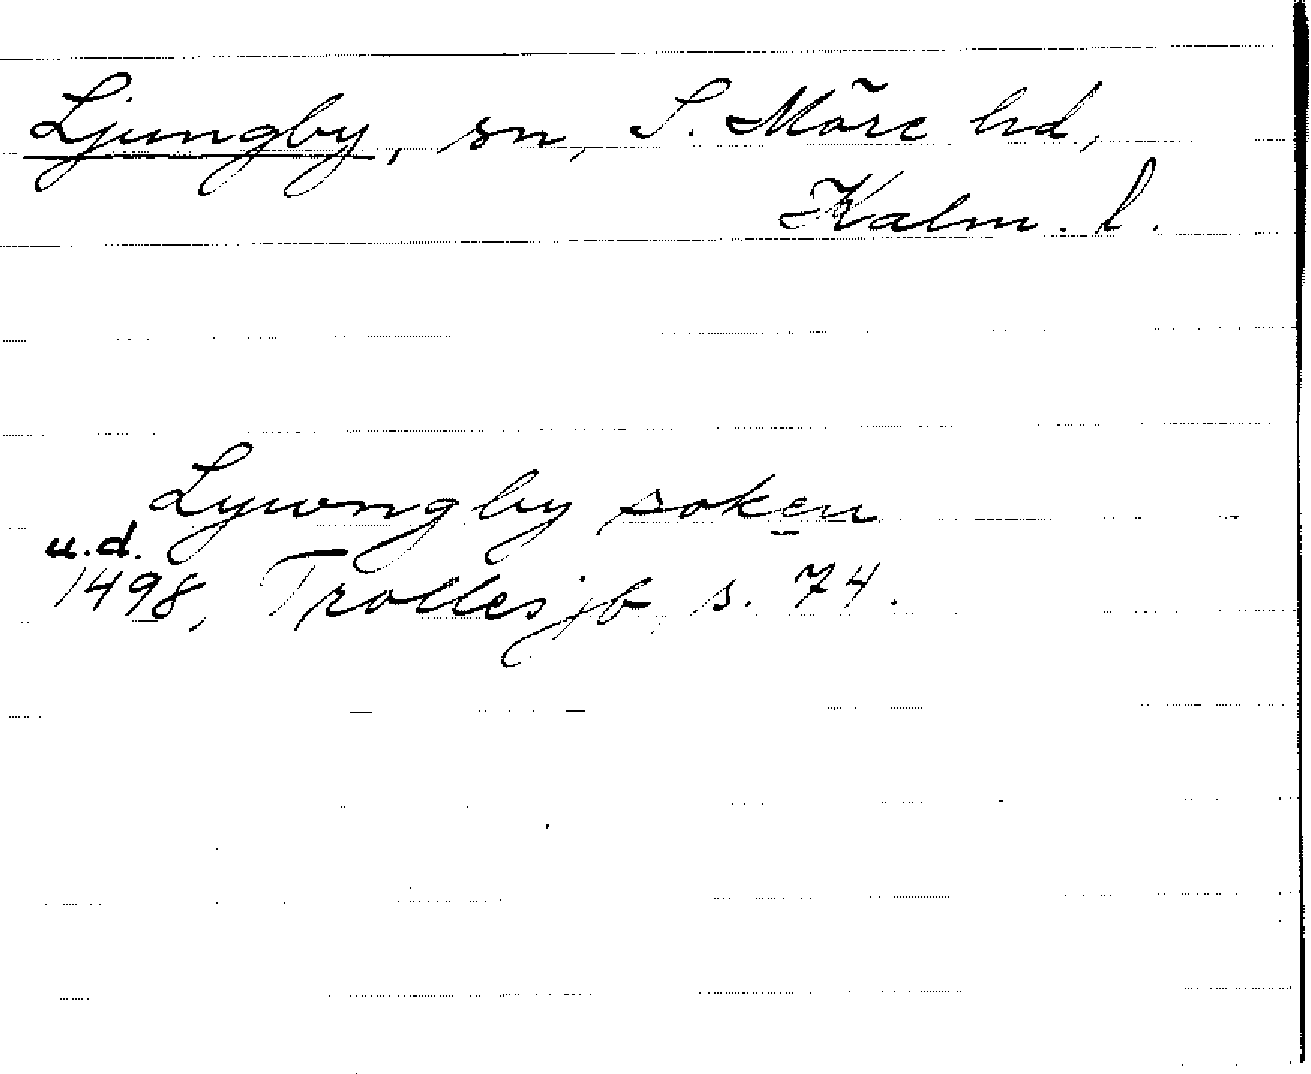 Ljungby, sn, S. Möre hd,
Kalm. l.
Lywngby soken
u.d.
1498, Trolles jb, s. 74.